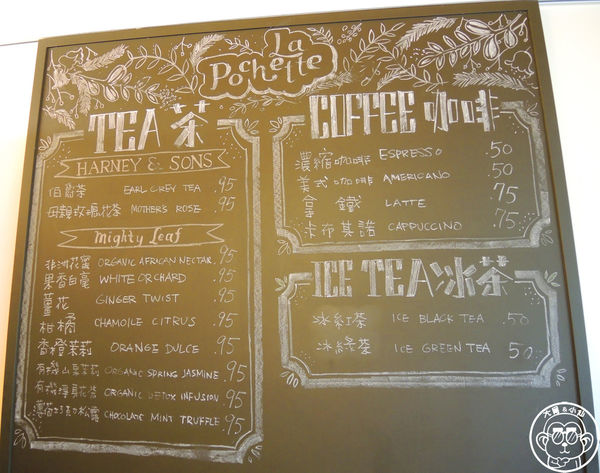 La
Pochette
TEA 茶
HARNEY & SONS
伯爵茶 EARL GREY TEA .95
母親玫瑰花茶 MOTHER'S ROSE .95
Mighty Leaf
非洲花蜜 ORGANIC AFRICAN NECTAR .95
果香白毫 WHITE ORCHARD .95
薑花 GINGER TWIST .95
柑橘 CHAMOILE CITRUS .95
香橙茉莉 ORANGE DULCE .95
有機山泉茉莉 ORGANIC SPRING JASMINE .95
有機淨身花茶 ORGANIC DETOX INFUSION .95
薄荷巧克力松露 CHOCOLATE MINT TRUFFLE .95
COFFEE 咖啡
濃縮咖啡 ESPRESSO .50
美式咖啡 AMERICANO .50
拿鐵 LATTE .75
卡布其諾 CAPPUCCINO .75
ICE TEA 冰茶
冰紅茶 ICE BLACK TEA .50
冰綠茶 ICE GREEN TEA 50